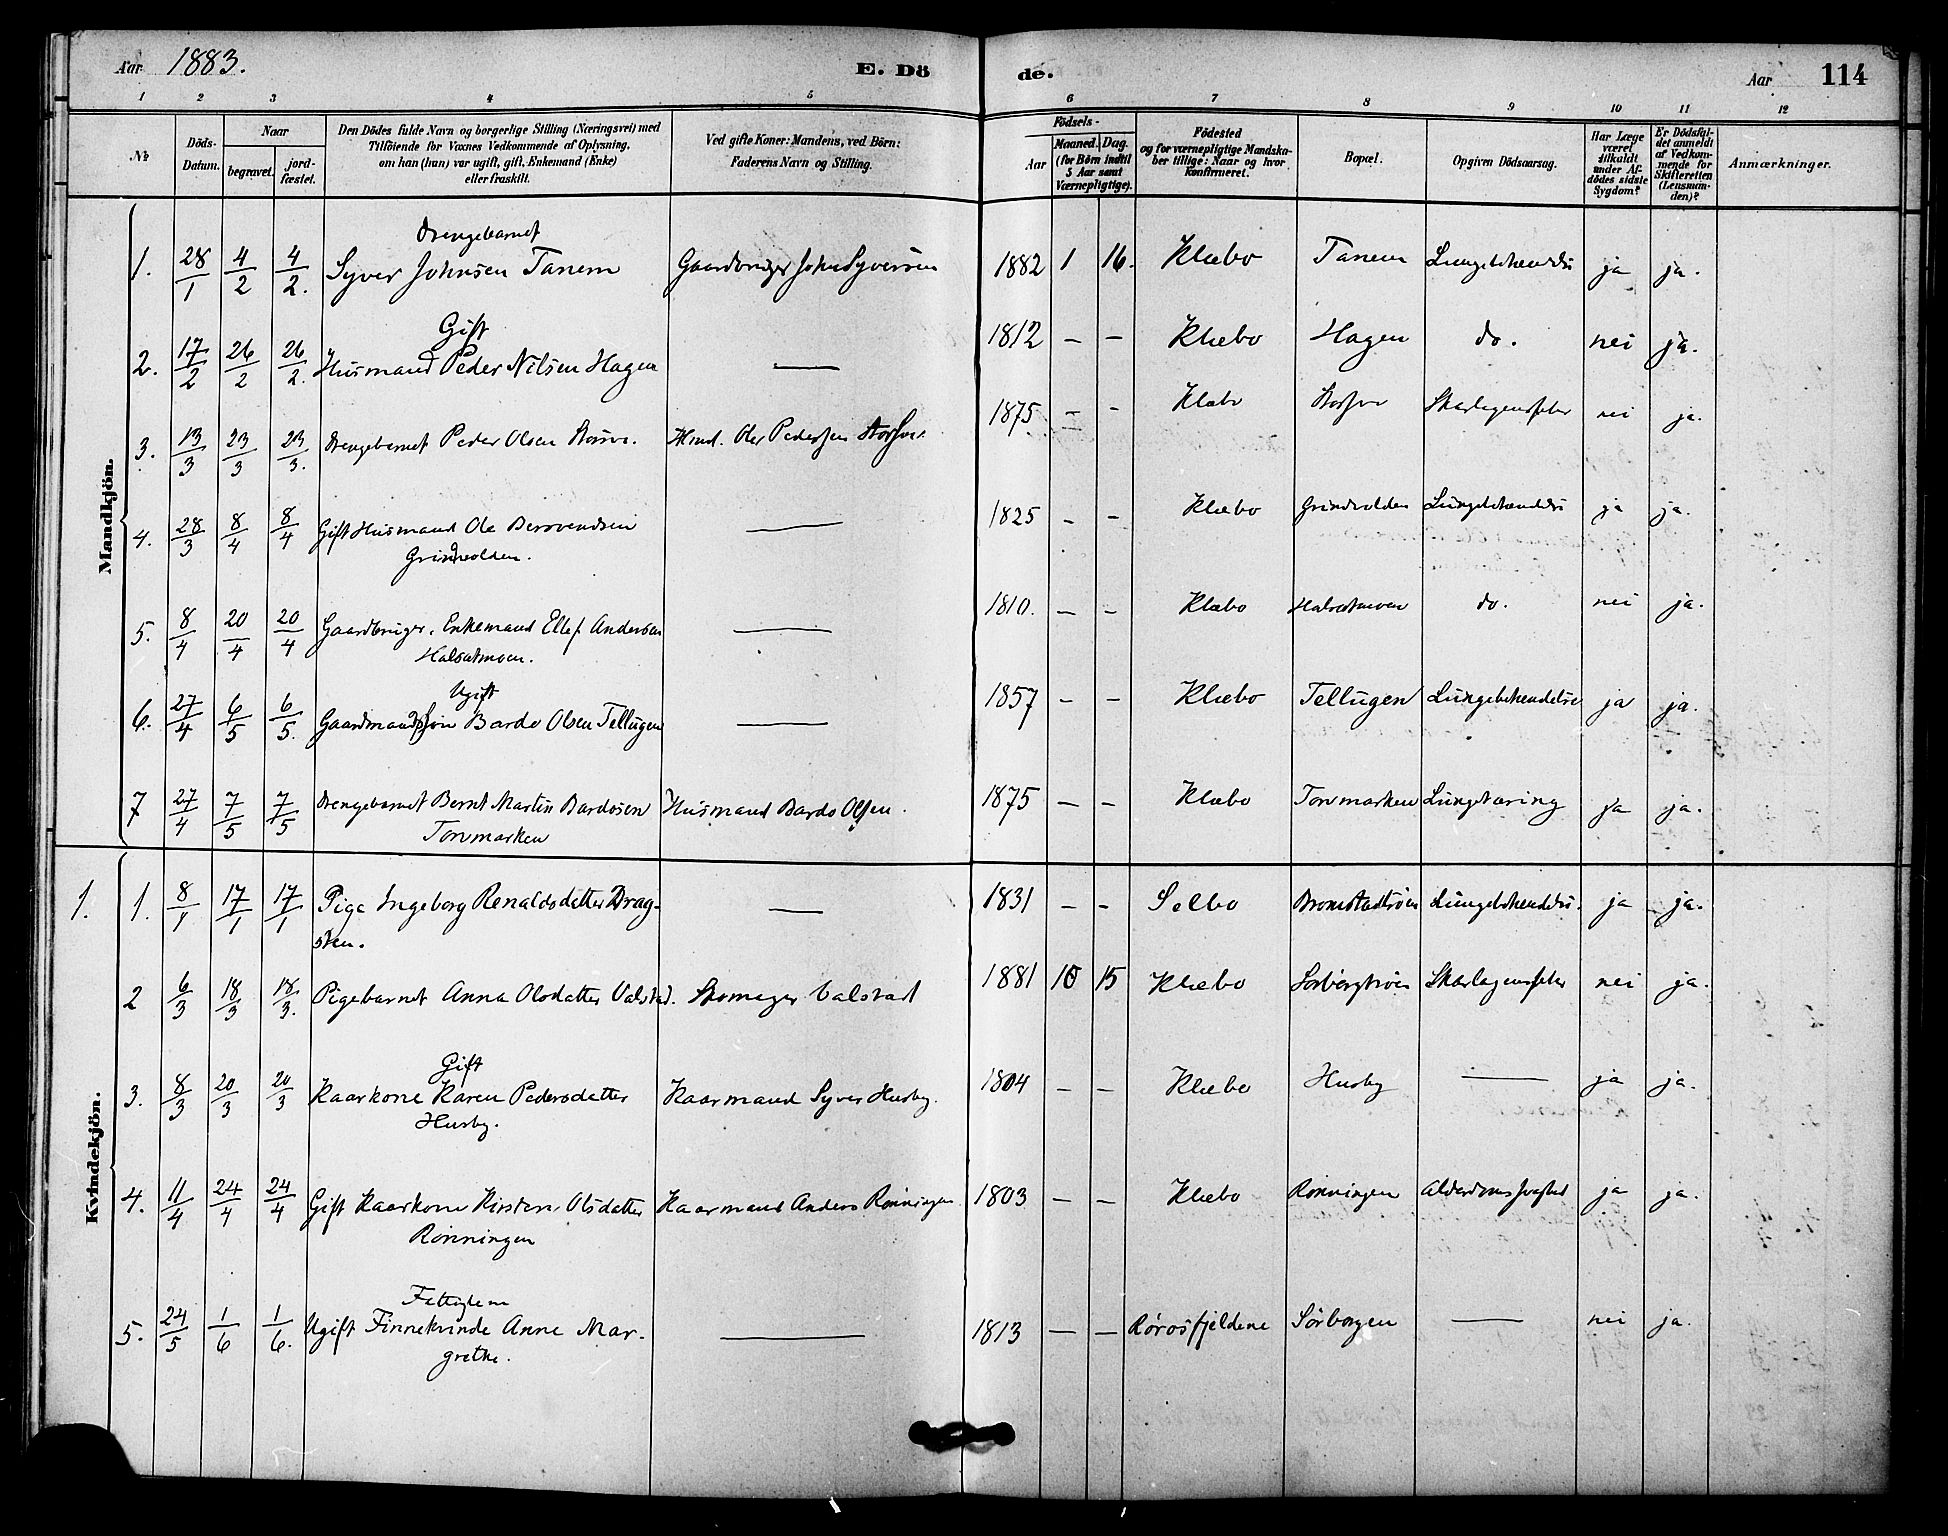 Aar 1883.
E. Dö de.
Aar 114
1 2 3 4 5 6 7 8 9 10 11 12
Nr.
Döds-Datum.
Naar
begravet.
jord-fæstet.
Den Dödes fulde Navn og borgerlige Stilling (Næringsvei) med
Tilföiende for Voxnes Vedkommende af Oplysning,
om han (hun) var ugift, gift, Enkemand (Enke)
eller fraskilt.
Ved gifte Koner: Mandens, ved Börn:
Faderens Navn og Stilling.
Födsels-
Aar
Maaned. Dag.
(for Börn indtil
5 Aar samt
Værnepligtige).
Födested
og for værnepligtige Mandska-
ber tillige: Naar og hvor
konfirmeret.
Bopæl.
Opgiven Dödsaarsag.
Har Læge
været
tilkaldt
under Af-
dödes sidste
Sygdom?
Er Dödsfal-
det anmeldt
af Vedkom-
mende for
Skifteretten
(Lensman-
den)?
Anmærkninger.
Mandkjön.
Drengebarnet
1. 28/1 4/2 4/2. Syver Johnsen Tanem Gaardbruger John Syversen 1882 1 16. Klæbo Tanem Lungebetændelse ja ja.
Gift
2. 17/2 26/2 26/2. Husmand Peder Nilsen Hagen — 1812 — — Klæbo Hagen do. nei ja.
3. 13/3 23/3 23/3. Drengebarnet Peder Olsen Husmd. Ole Pedersen 1875 — — Klæbo Skarlagensfeber nei ja.
4. 28/3 8/4 8/4 Gift Husmand Ole Berdvendsen — 1825 — — Klæbo Grindvolden Lungebetændelse ja ja.
Grindvolden.
5. 8/4 20/4 20/4 Gaardbruger, Enkemand Ellef Andersen — 1810. — — Klæbo Halsetmoen do. nei ja.
Halsetmoen.
Ugift
6. 27/4 6/5 6/5. Gaardmandssøn Bardo Olsen Tellugen — 1857 — — Klæbo Tellugen Lungebetændelse ja ja.
7 27/4 7/5 7/5 Drengebarnet Bernt Martin Bardosen Husmand Bardo Olsen. 1875 — — Klæbo Tonmarken Lungetæring ja ja.
Tonmarken
Kvindekjön.
1. 1. 8/1 17/1 17/1 Pige Ingeborg Renaldsdatter Drag- — 1831 — — Selbo Lungebetændelse. ja ja.
sten.
2 6/3 18/3 18/3. Pigebarnet Anna Olsdatter Valstad. Skomager Valstad 1881 10 15 Klæbo Sørborgtrøen Skarlagensfeber nei ja.
Gift
3. 8/3 20/3 20/3 Kaarkone Karen Pedersdatter Kaarmand Syver Husby. 1804 — — Klæbo Husby — ja ja.
Husby.
4. 11/4 24/4 24/4 Gift Kaarkone Kirsten Olsdatter Kaarmand Anders Rønningen 1803 — — Klæbo Rønningen Alderdomssvaghed ja ja.
Rønningen
Fattiglem
5. 24/5 1/6 1/6. Ugift Finnekvinde Anne Mar- — 1813 — — Rørosfjeldene Sørborgen — nei ja.
grethe.